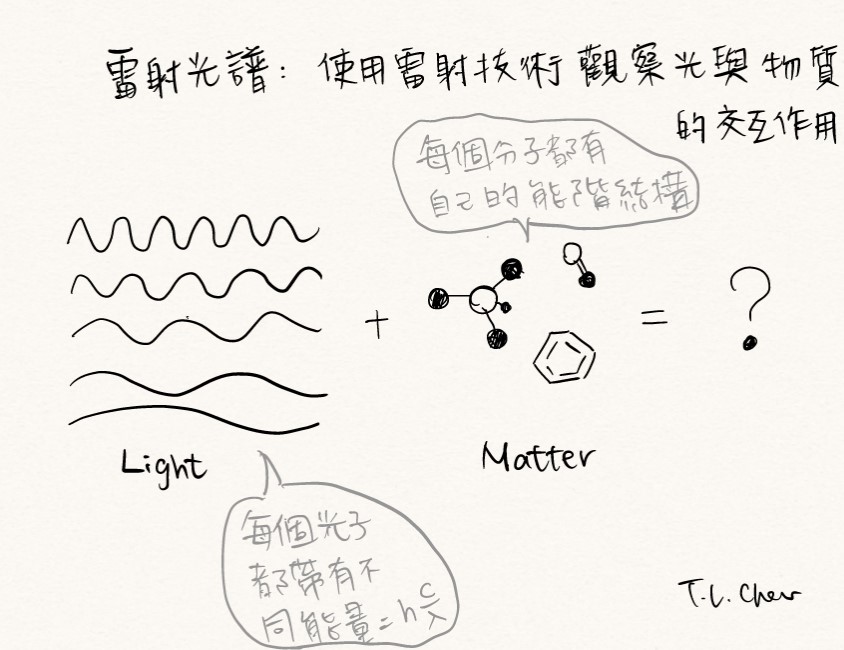 雷射光譜：使用雷射技術觀察光與物質
的交互作用
每個分子都有
自己的能階結構
+
=
?
Light
Matter
每個光子
都帶有不
同能量=h c/λ
T.L. Chen